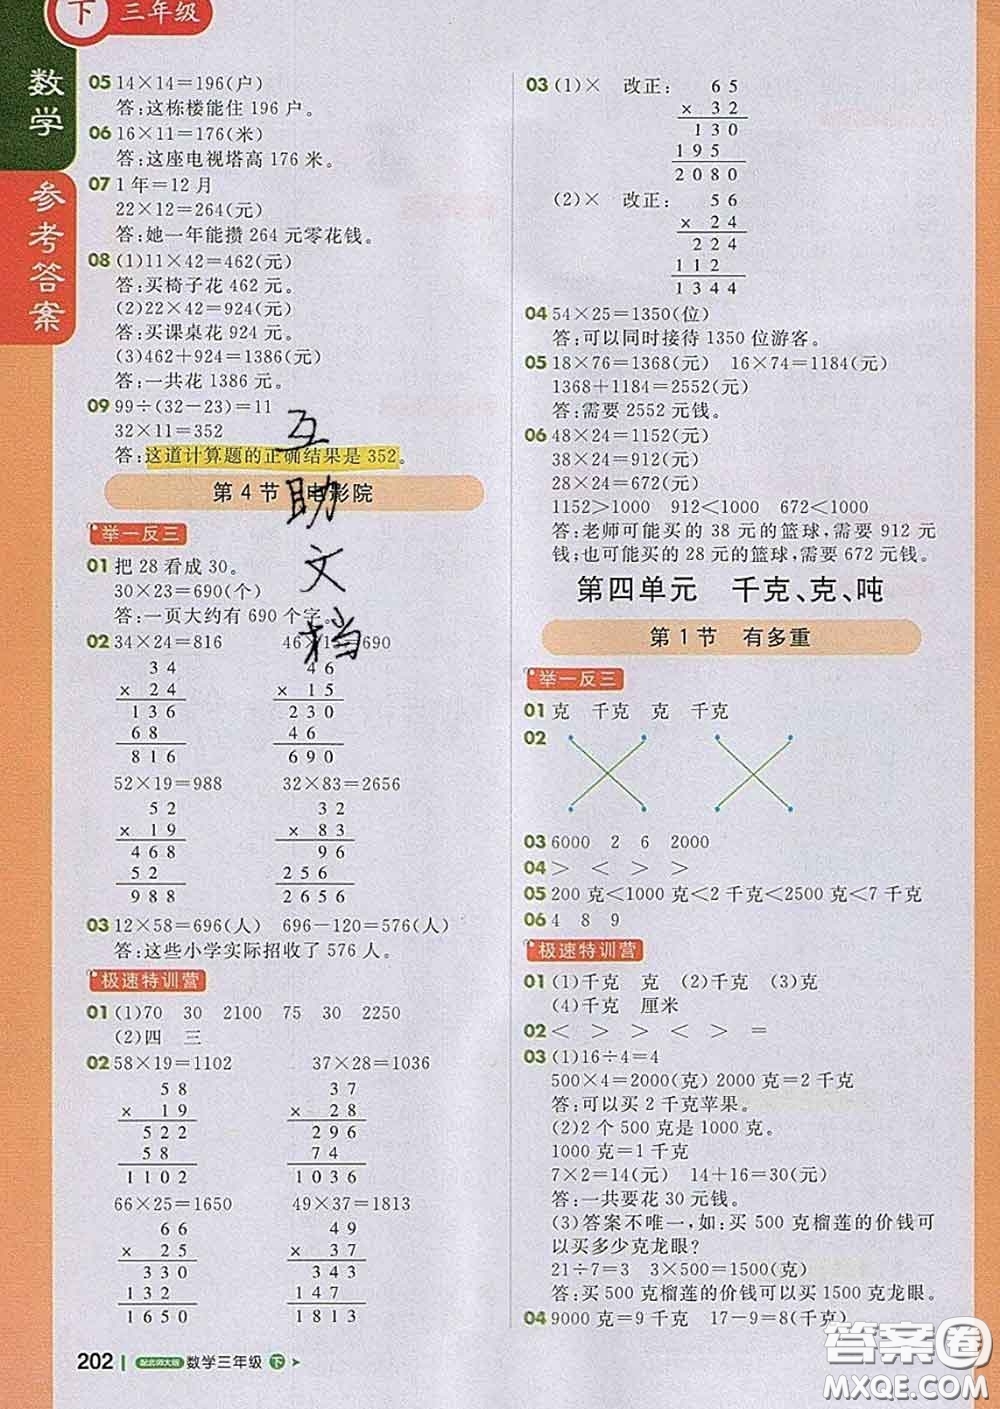 下 三年级
数学
参考答案
05 14×14=196(户)
答:这栋楼能住 196 户。
06 16×11=176(米)
答:这座电视塔高 176 米。
07 1 年=12 月
22×12=264(元)
答:她一年能攒 264 元零花钱。
08 (1)11×42=462(元)
答:买椅子花 462 元。
(2)22×42=924(元)
答:买课桌花 924 元。
(3)462+924=1386(元)
答:一共花 1386 元。
09 99÷(32-23)=11
32×11=352
答:这道计算题的正确结果是 352。
第 4 节 电影院
举一反三
01 把 28 看成 30。
30×23=690(个)
答:一页大约有 690 个字。
02 34×24=816 46×15=690
34 46
× 24 × 15
136 230
68 46
816 690
52×19=988 32×83=2656
52 32
× 19 × 83
468 96
52 256
988 2656
03 12×58=696(人) 696-120=576(人)
答:这些小学实际招收了 576 人。
极速特训营
01 (1)70 30 2100 75 30 2250
(2)四 三
02 58×19=1102 37×28=1036
58 37
× 19 × 28
522 296
58 74
1102 1036
66×25=1650 49×37=1813
66 49
× 25 × 37
330 343
132 147
1650 1813
202 配北师大版 数学三年级 下
互助文档
03 (1)× 改正: 65
× 32
130
195
2080
(2)× 改正: 56
× 24
224
112
1344
04 54×25=1350(位)
答:可以同时接待 1350 位游客。
05 18×76=1368(元) 16×74=1184(元)
1368+1184=2552(元)
答:需要 2552 元钱。
06 48×24=1152(元)
38×24=912(元)
28×24=672(元)
1152>1000 912<1000 672<1000
答:老师可能买的 38 元的篮球,需要 912 元
钱;也可能买的 28 元的篮球,需要 672 元钱。
第四单元 千克、克、吨
第 1 节 有多重
举一反三
01 克 千克 克 千克
02
03 6000 2 6 2000
04 > < > >
05 200 克<1000 克<2 千克<2500 克<7 千克
06 4 8 9
极速特训营
01 (1)千克 克 (2)千克 (3)克
(4)千克 厘米
02 < > > < > =
03 (1)16÷4=4
500×4=2000(克) 2000 克=2 千克
答:可以买 2 千克苹果。
(2)2 个 500 克是 1000 克。
1000 克=1 千克
7×2=14(元) 14+16=30(元)
答:一共要花 30 元钱。
(3)答案不唯一,如:买 500 克榴莲的价钱可
以买多少克龙眼?
21÷7=3 3×500=1500(克)
答:买 500 克榴莲的价钱可以买 1500 克龙眼。
04 9000 克=9 千克 17-9=8(千克)
答案圈
MXQE.COM